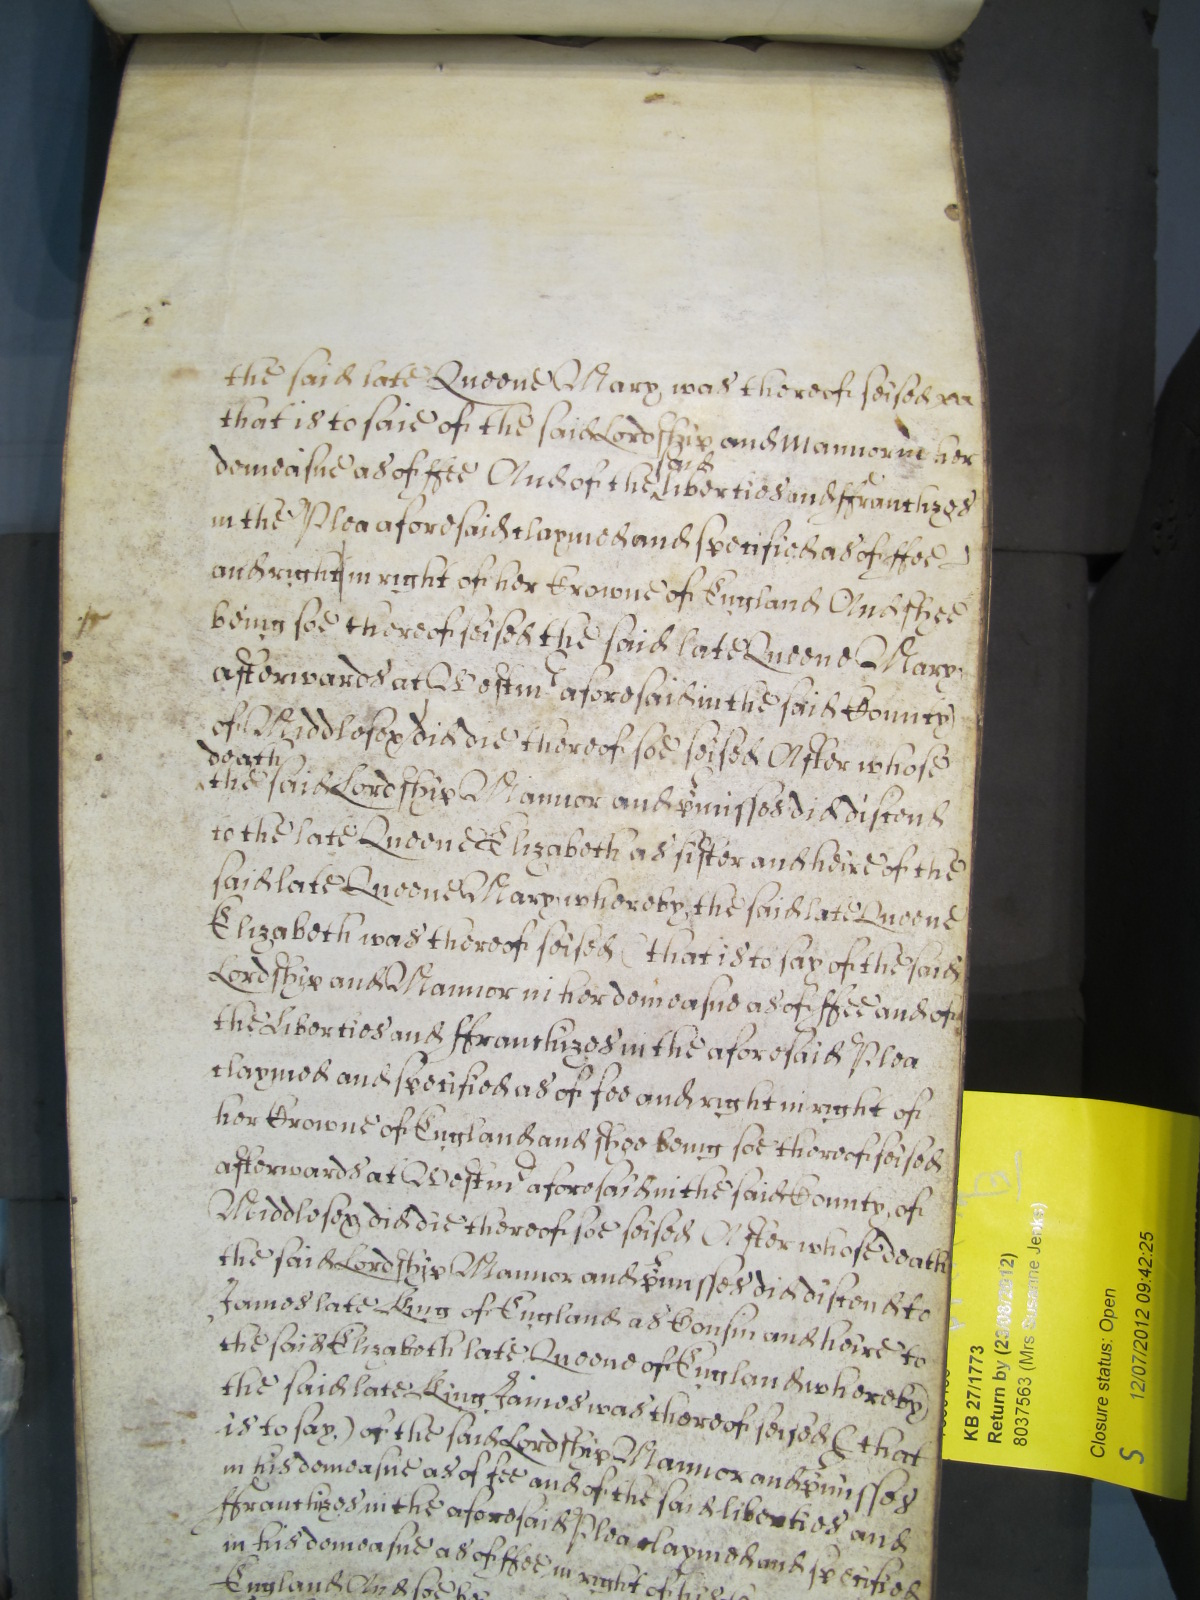 the said late Queene Mary was thereof seised
that is to saie of the said Lordshipp and Mannor in her
demeasne as of ffee And of the said Liberties and ffranchizes
in the Plea aforesaid claymed and specified as of ffee
and right in right of her Crowne of England And shee
being soe thereof seised the said late Queene Mary
afterwards at Westmr aforesaid in the said County
of Middlesex did die thereof soe seised After whose
death
the said Lordshipp Mannor and pmisses did discend
to the late Queene Elizabeth as sister and heire of the
said late Queene Mary whereby the said late Queene
Elizabeth was thereof seised (that is to say of the said
Lordshipp and Mannor in her demeasne as of ffee and of
the Liberties and ffranchizes in the aforesaid Plea
claymed and specified as of fee and right in right of
her Crowne of England and shee being soe thereof seised
afterwards at Westmr aforesaid in the said County of
Middlesex did die thereof soe seised After whose death
the said Lordshipp Mannor and pmisses did discend to
James late King of England as Cousin and heire to
the said Elizabeth late Queene of England whereby
the said late King James was thereof seised (that
is to say) of the said Lordshipp Mannor and pmisses
in his demeasne as of fee and of the said liberties and
ffranchizes in the aforesaid Plea claymed and specified
in his demeasne as of ffee in right of his
England And soe
KB 27/1773
Return by (23/08/2012)
8037563 (Mrs Susanne Jenks)
Closure status: Open
12/07/2012 09:42:25
S